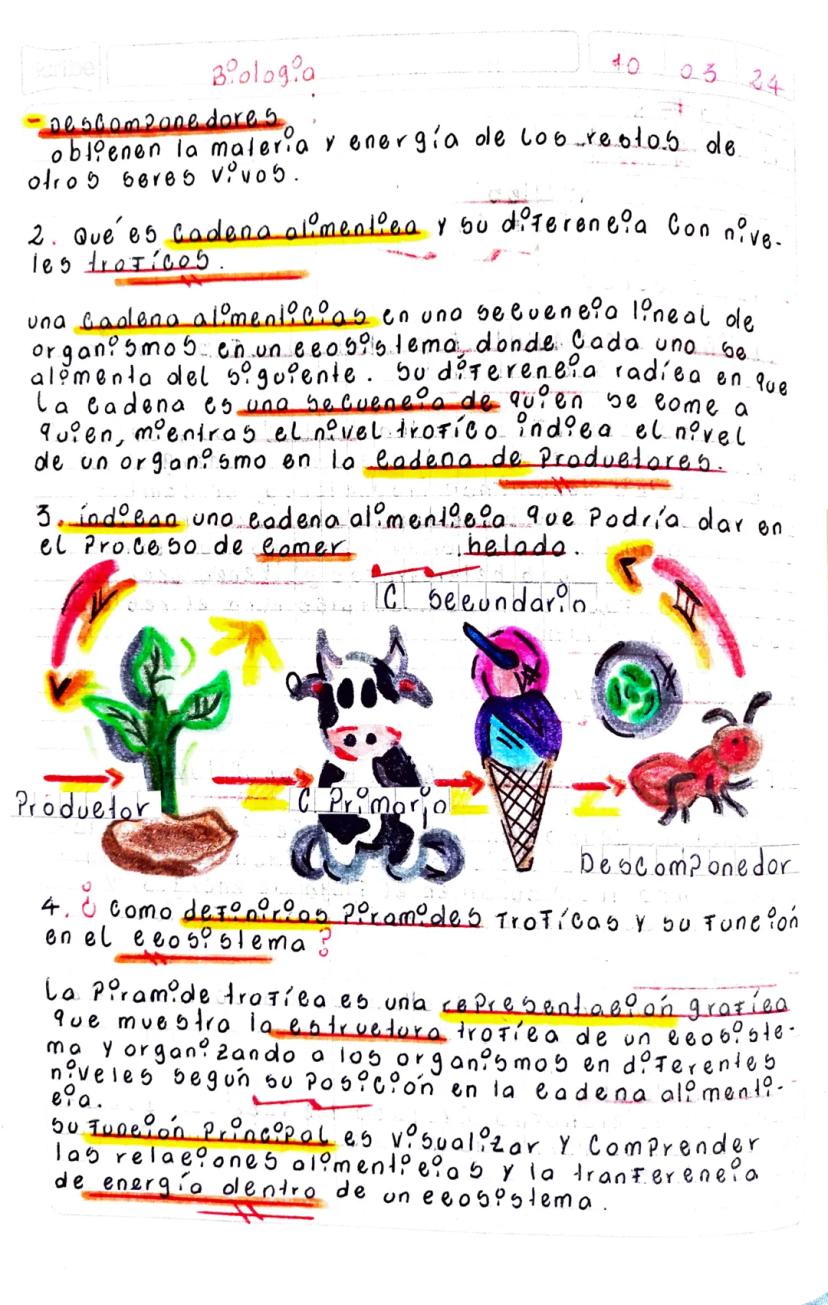 scribe
Biología
10 03 24
- Descomponedores
obtienen la materia y energía de los restos de
otros seres vivos.
2. Qué es Cadena alimenticia y su diferencia con nive-
les troficos.
una Cadena alimenticias en una secuencia lineal de
organismos en un ecosistema donde Cada uno se
alimenta del siguiente. Su diferencia radica en que
La cadena es una secuencia de quien se come a
quien, mientras el nivel trofico indica el nivel
de un organismo en la cadena de Productores.
3. indican una cadena alimenticia que Podría dar en
el Proceso de comer helado.
C. Secundario
Productor
C Primario
Descomponedor
4. ¿ Como definirias Piramides Troficas y su función
en el ecosistema?
La Piramide trofica es una representación grafica
que muestra la estructura trofica de un ecosiste-
ma y organizando a los organismos en diferentes
niveles según su Posición en la cadena alimenti-
cia.
Su función Principal es visualizar y Comprender
las relaciones alimenticias y la tranferencia
de energía dentro de un ecosistema.